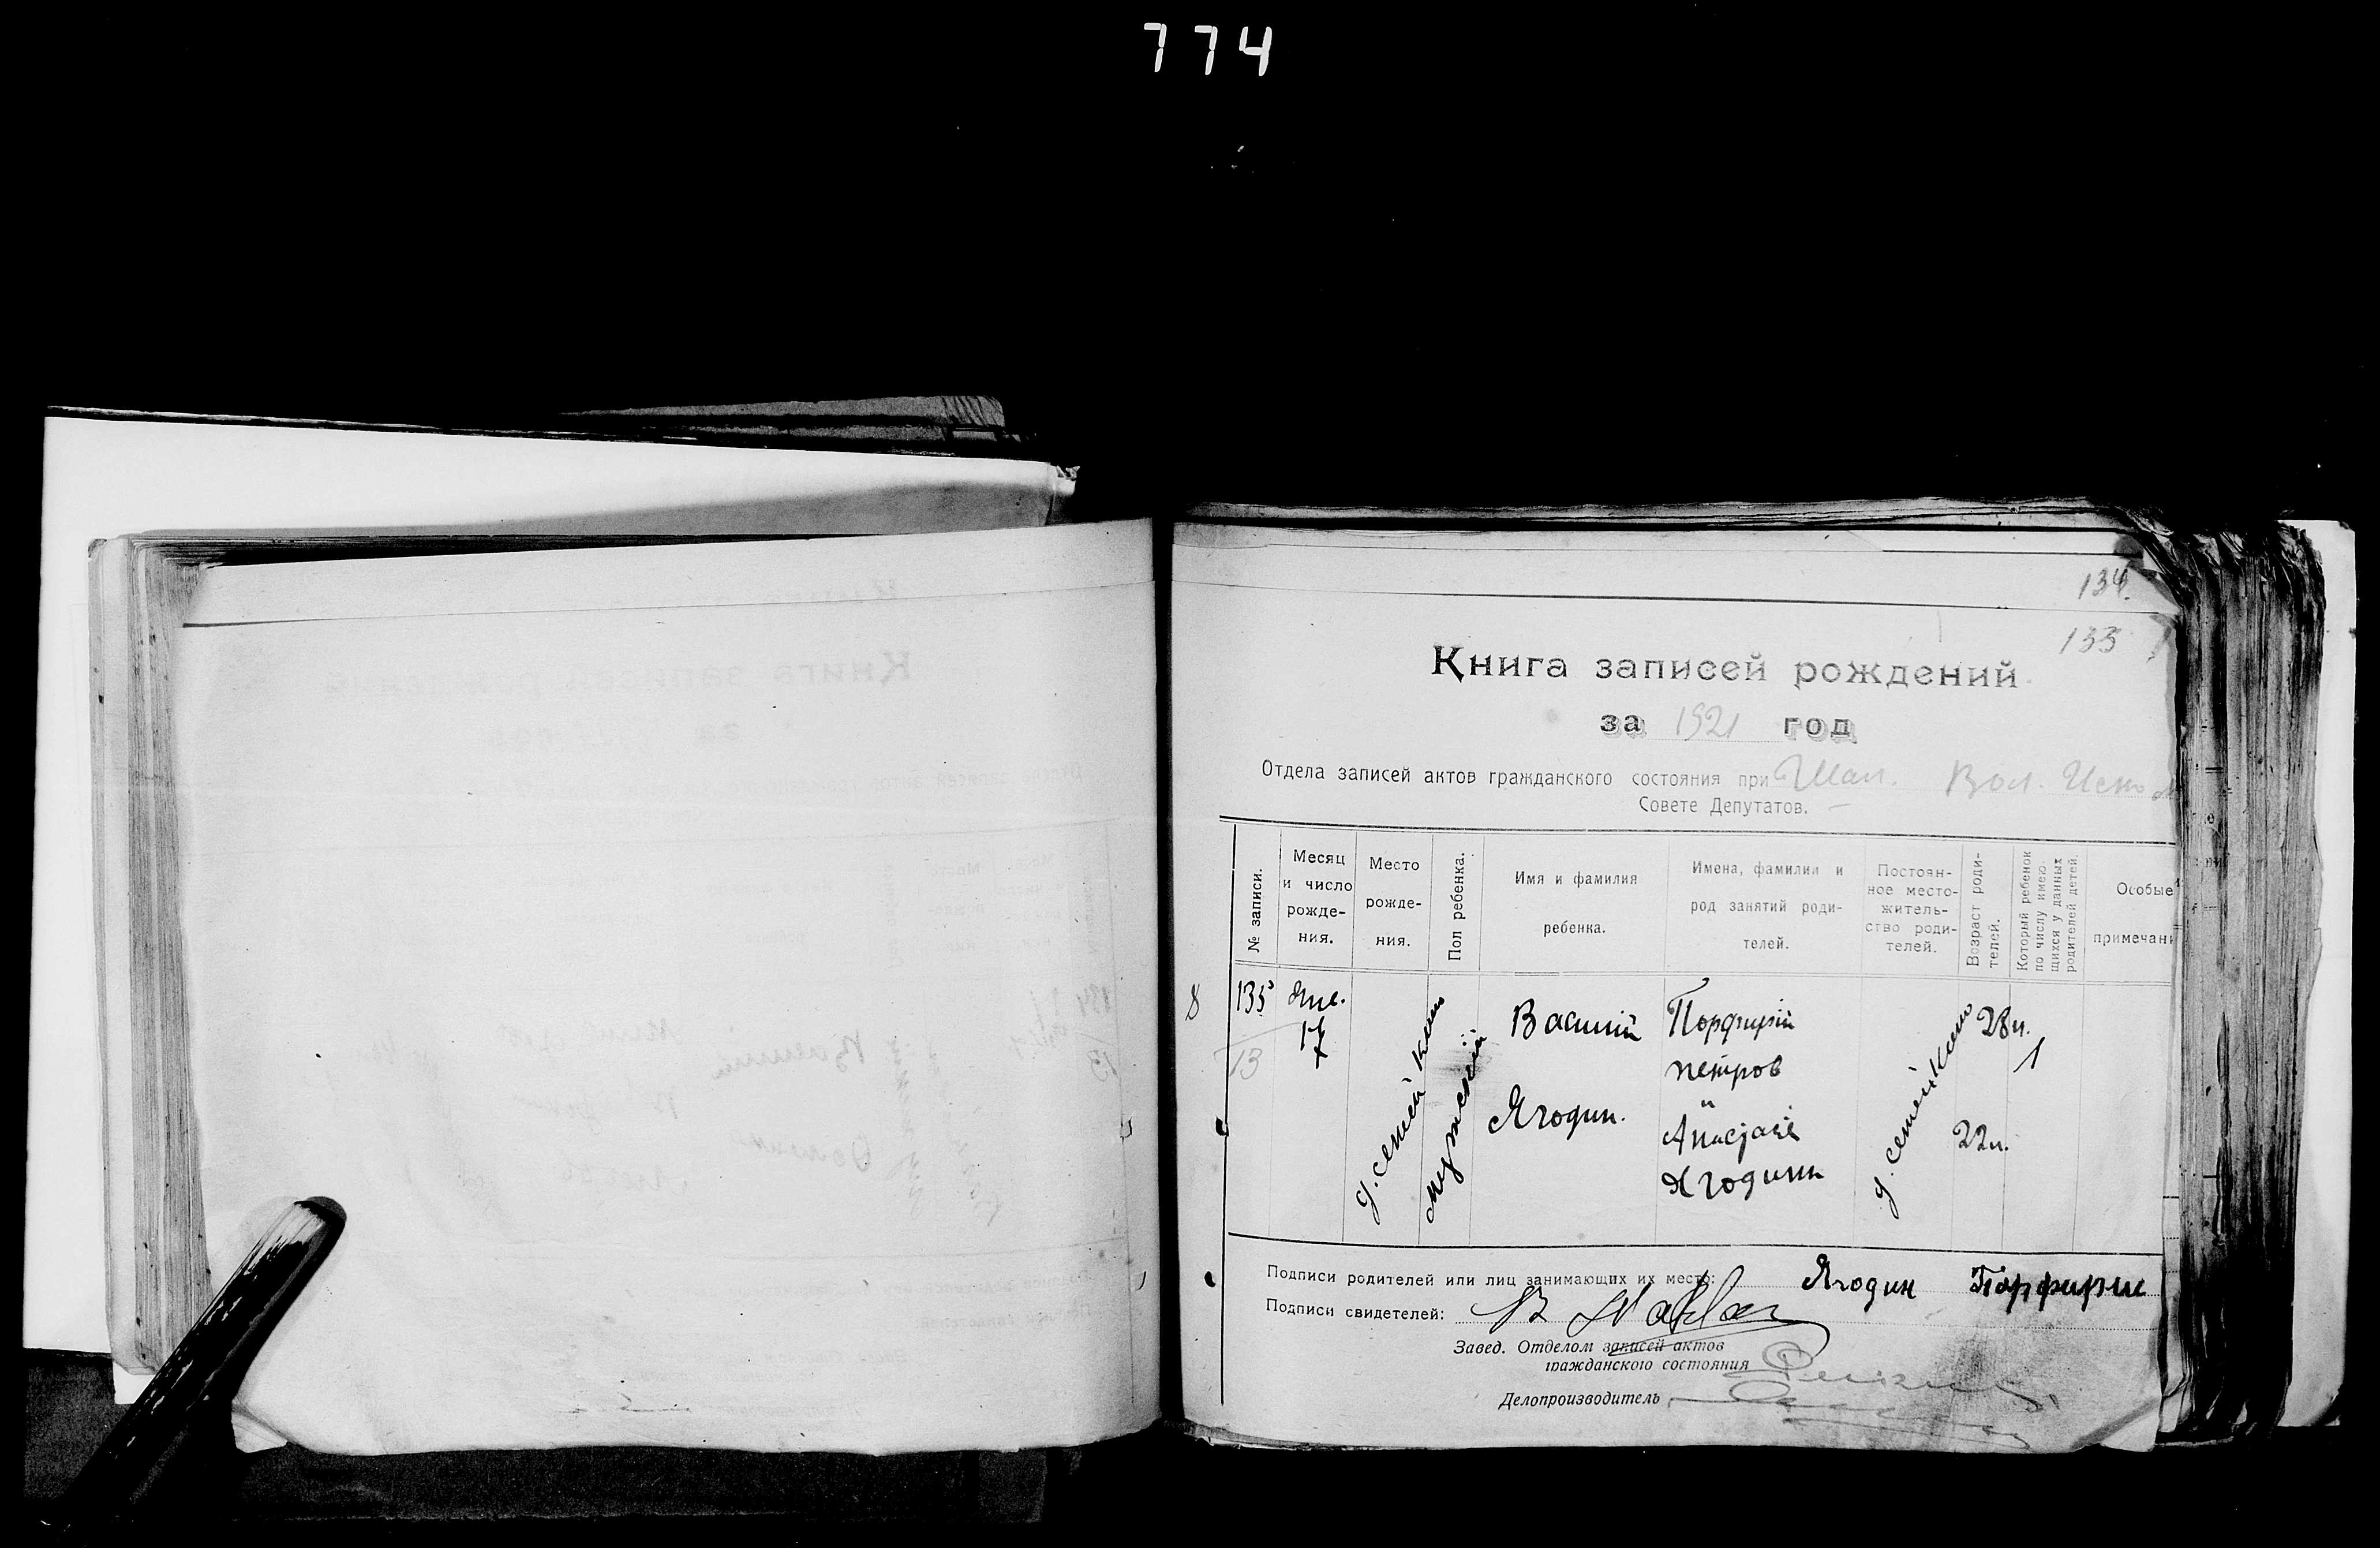 774
134.
133
Книга записей рождений
за 1921 год
Отдела записей актов гражданского состояния при Шал. Вол. Испо
Совете Депутатов.
№ записи.
Месяц и число рожде- ния.
Место рожде- ния.
Пол ребенка.
Имя и фамилия ребенка.
Имена, фамилии и род занятий роди- телей.
Постоян- ное место- житель- ство роди- телей.
Возраст роди- телей.
Который ребенок по числу имею- щихся у данных родителей детей.
Особые примечан
8
135
13
Янв.
17
д. Сенькино
мужской
Василий
Ягодин.
Порфирий
Петров
Ягодины
д. Сенькино
28 л.
22 л.
1
Подписи родителей или лиц занимающих их место: Ягодин Парфирие
Подписи свидетелей:
Завед. Отделом записей актов
гражданского состояния
Делопроизводитель